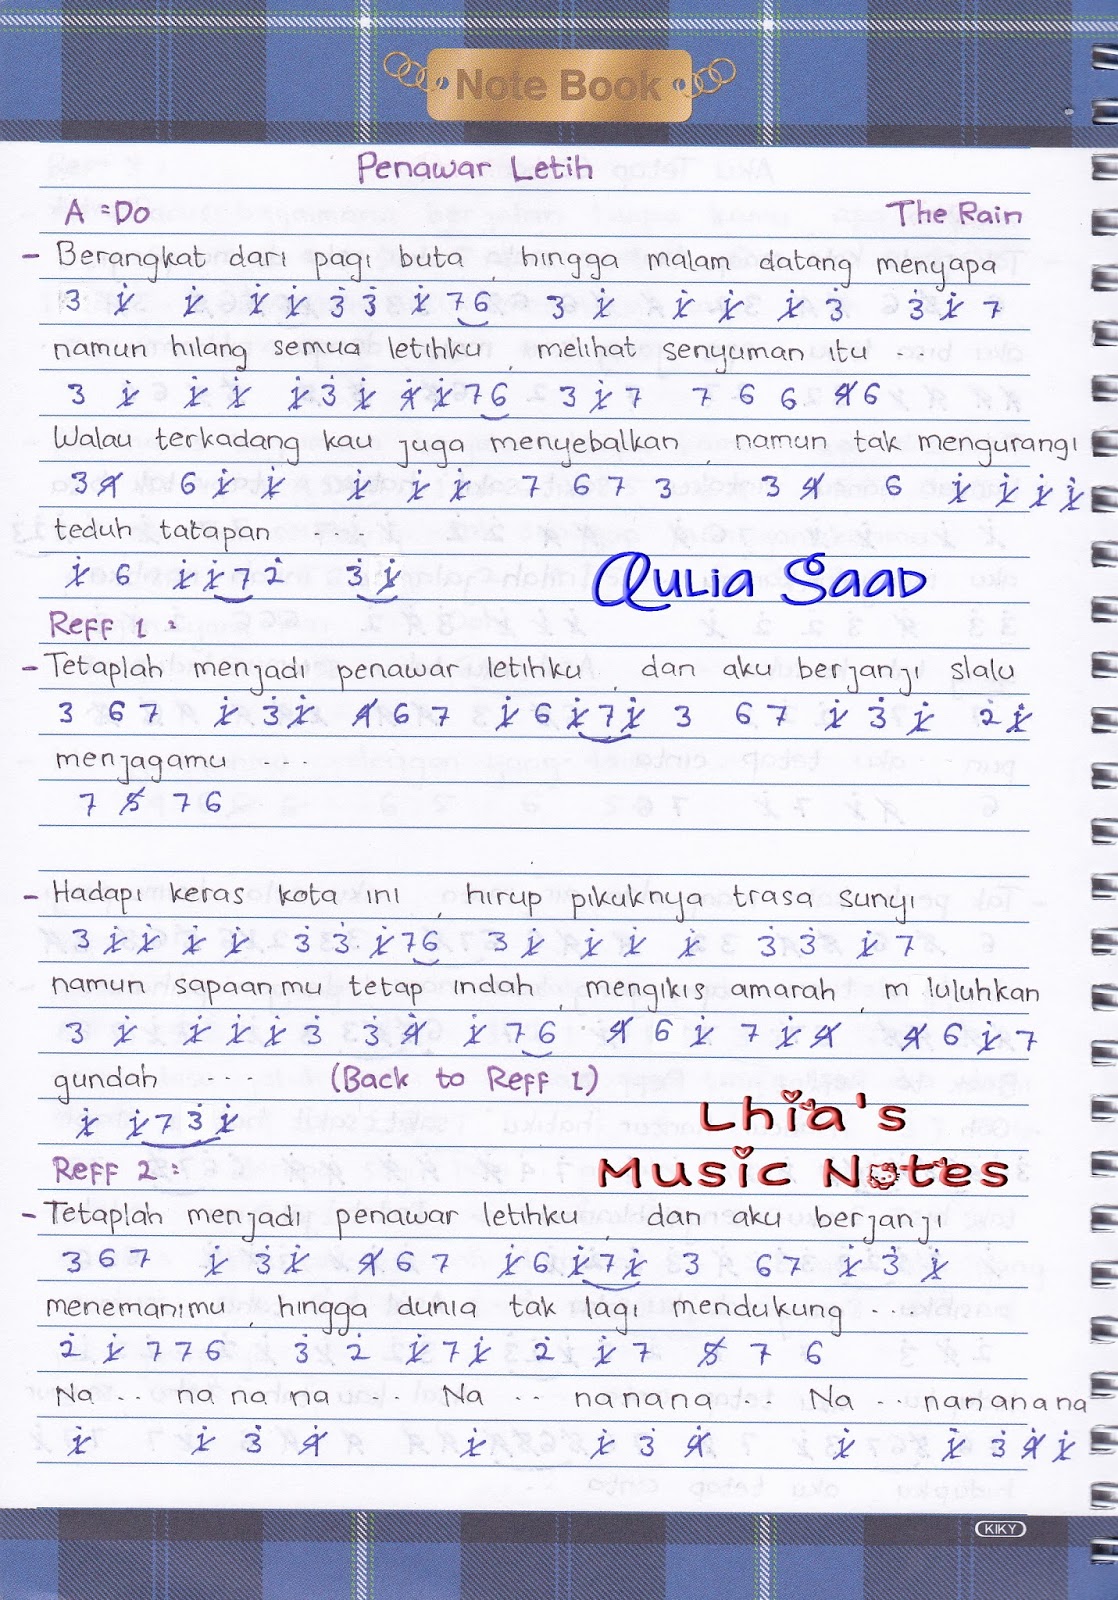 Note Book
Penawar Letih
A = Do The Rain
- Berangkat dari pagi buta, hingga malam datang menyapa
3 1̸̇ 1̸̇ 1̸̇ 1̸̇ 3̇ 3̇ 1̸̇ 7 6 3 1̸̇ 1̸̇ 1̸̇ 1̸̇ 3̇ 3̇ 1̸̇ 7
namun hilang semua letihku, melihat senyuman itu ...
3 1̸̇ 1̸̇ 1̸̇ 1̸̇ 3̇ 1̸̇ 4̸̇ 1̸̇ 7 6 3 1̸̇ 7 7 6 6 4̸ 6
Walau terkadang kau juga menyebalkan, namun tak mengurangi
3 4̸ 6 1̸̇ 1̸̇ 1̸̇ 1̸̇ 1̸̇ 7 6 7 3 3 4̸ 6 1̸̇ 1̸̇ 1̸̇ 1̸̇
teduh tatapan ....
1̸̇ 6 1̸̇ 1̸̇ 7 2̇ 3̇ 1̸̇
Qulia Saad
Reff 1 :
- Tetaplah menjadi penawar letihku, dan aku berjanji slalu
3 6 7 1̸̇ 3̇ 1̸̇ 4̸ 6 7 1̸̇ 6 1̸̇ 7 1̸̇ 3 6 7 1̸̇ 3̇ 1̸̇ 2̇ 1̸̇
menjagamu ...
7 5̸ 7 6
- Hadapi keras kota ini, hirup pikuknya trasa sunyi
3 1̸̇ 1̸̇ 1̸̇ 1̸̇ 3̇ 3̇ 1̸̇ 7 6 3 1̸̇ 1̸̇ 1̸̇ 1̸̇ 3̇ 3̇ 1̸̇ 7
namun sapaanmu tetap indah, mengikis amarah, m luluhkan
3 1̸̇ 1̸̇ 1̸̇ 1̸̇ 3̇ 3̇ 4̸̇ 1̸̇ 7 6 4̸ 6 1̸̇ 7 1̸̇ 4̸ 4̸ 6 1̸̇ 7
gundah .... (Back to Reff 1)
1̸̇ 1̸̇ 7 3̇ 1̸̇
Lhia's
Music Notes
Reff 2 :
- Tetaplah menjadi penawar letihku, dan aku berjanji
3 6 7 1̸̇ 3̇ 1̸̇ 4̸ 6 7 1̸̇ 6 1̸̇ 7 1̸̇ 3 6 7 1̸̇ 3̇ 1̸̇
menemanimu, hingga dunia tak lagi mendukung ...
2̇ 1̸̇ 7 7 6 3̇ 2̇ 1̸̇ 7 1̸̇ 2̇ 1̸̇ 7 5̸ 7 6
Na .. na na na .. Na .. na na na .. Na .. na na na na
1̸̇ 1̸̇ 3̇ 4̸̇ 1̸̇ 1̸̇ 3̇ 4̸̇ 1̸̇ 1̸̇ 3̇ 4̸̇ 1̸̇
KIKY